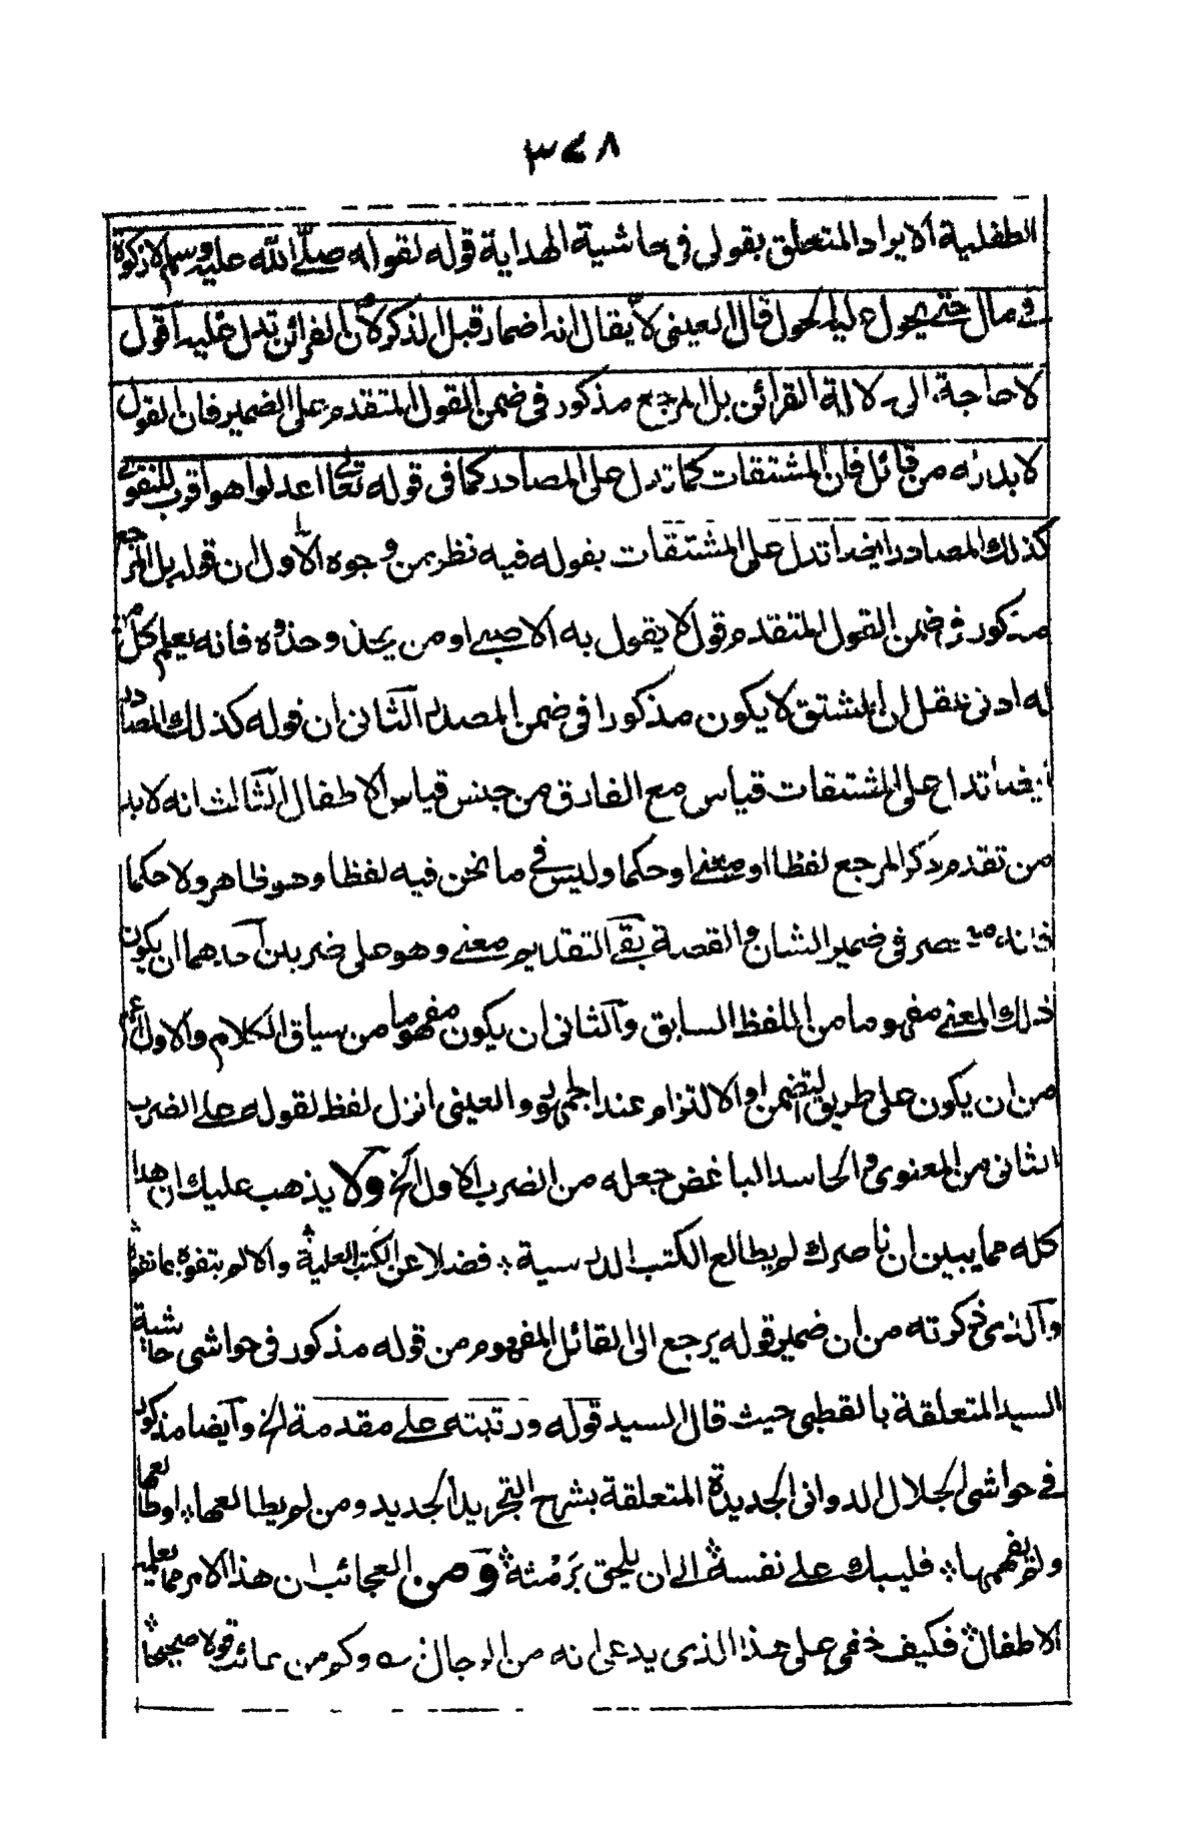 ٣٤٨
الطفلية الايراد المتعلق بقولي في حاشية الهداية قوله لقوله صلى الله عليه وسلم لا زكوة
في مال حتى يحول عليه الحول قال العيني لا يقال انه اضمار قبل الذكر لأن القرائن تدل عليه اقول
لا حاجة الى دلالة القرائن بل المرجع مذكور في ضمن القول المتقدم على الضمير فان القول
لا بد له من قائل فان المشتقات كما تدل على المصادر كما في قوله تعالى اعدلوا هو اقرب للتقوى
كذلك المصادر ايضا تدل على المشتقات بقوله فيه نظر من وجوه الاول ان قوله بل المرجع
مذكور في ضمن القول المتقدم قول لا يقول به الا صبي او من يحذو حذوه فانه يعلم كل من
له ادنى عقل ان المشتق لا يكون مذكورا في ضمن المصدر الثاني ان قوله كذلك المصادر
ايضا تدل على المشتقات قياس مع الفارق من جنس قياس الاطفال الثالث انه لا بد
من تقدم ذكر المرجع لفظا او معنى او حكما وليس في ما نحن فيه لفظا وهو ظاهر ولا حكما
فانه منحصر في ضمير الشان والقصة بقي التقديم معنى وهو على ضربين احدهما ان يكون
ذلك المعنى مفهوما من اللفظ السابق والثاني ان يكون مفهوما من سياق الكلام والاول اعم
من ان يكون على طريق التضمن او الالتزام عند الجمهور والعيني انزل لفظ لقوله على الضرب
الثاني من المعنوي والحاسد الباغض جعله من الضرب الاول الخ ولا يذهب عليك ان هذا
كله مما يبين ان ناصرك لم يطالع الكتب الدرسية ؞ فضلا عن الكتب العلية ؞ والا لم يتفوه بما تفوه ؞
والذي ذكرته من ان ضمير قوله يرجع الى القائل المفهوم من قوله مذكور في حواشي حاشية
السيد المتعلقة بالقطبي حيث قال السيد قوله ورتبته على مقدمة الخ وايضا مذكور
في حواشي الجلال الدواني الجديدة المتعلقة بشرح التجريد الجديد ومن لم يطالعها ؞ او طالعها
ولم يفهمها ؞ فليبك على نفسه ؞ الى ان يلحق برمثه ؞ ومن العجائب ان هذا الامر مما يعلمه
الاطفال ؞ فكيف خفي على هذا الذي يدعي انه من الرجال ؞ وكم من عائب قولا صحيحا ؞